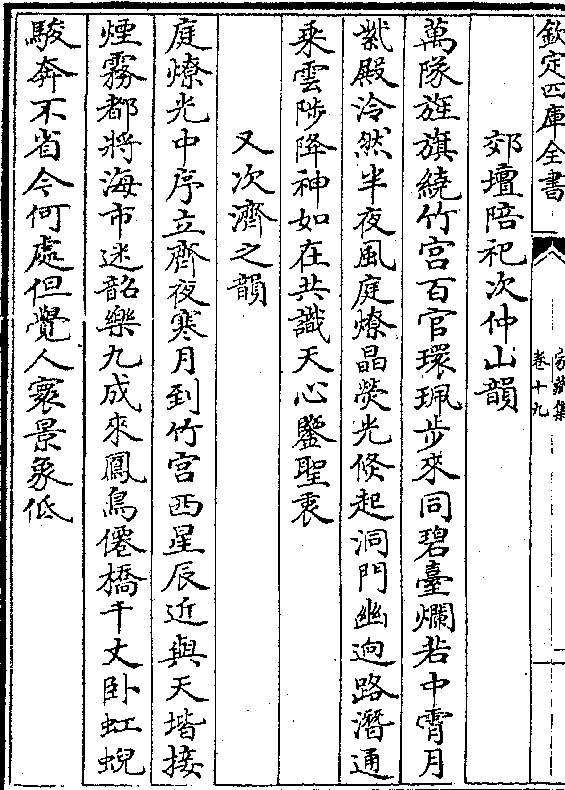 欽定四庫全書
家藏集
卷十九
郊壇陪祀次仲山韻
萬隊旌旗繞竹宫百官環珮步來同碧臺爛若中霄月
紫殿泠然半夜風庭燎晶熒光倐起洞門幽迥路潛通
乘雲陟降神如在共識天心鑒聖衷
又次濟之韻
庭燎光中序立齊夜寒月到竹宫西星辰近與天堦接
煙霧都將海市迷韶樂九成來鳳鳥僊橋千丈卧虹蜺
駿奔不省今何處但覺人寰景象低